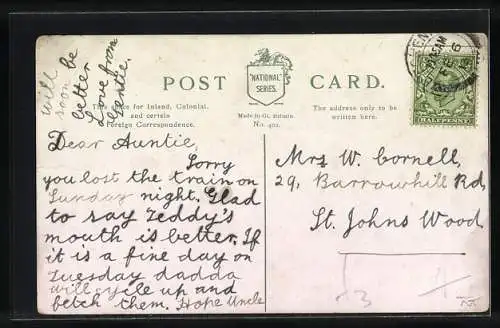 POST CARD.
"NATIONAL"
SERIES.
This Space for Inland, Colonial,
and certain
Foreign Correspondence.
Made in Gt. Britain.
No. 402.
The address only to be
written here.
HALFPENNY
Dear Auntie,
Sorry
you lost the train on
Sunday night. Glad
to say Teddy's
mouth is better. If
it is a fine day on
Tuesday dadda
will cycle up and
fetch them. Hope Uncle
will be
soon better
Love from
Mrs W. Cornell,
29, Barrowhill Rd,
St. Johns Wood